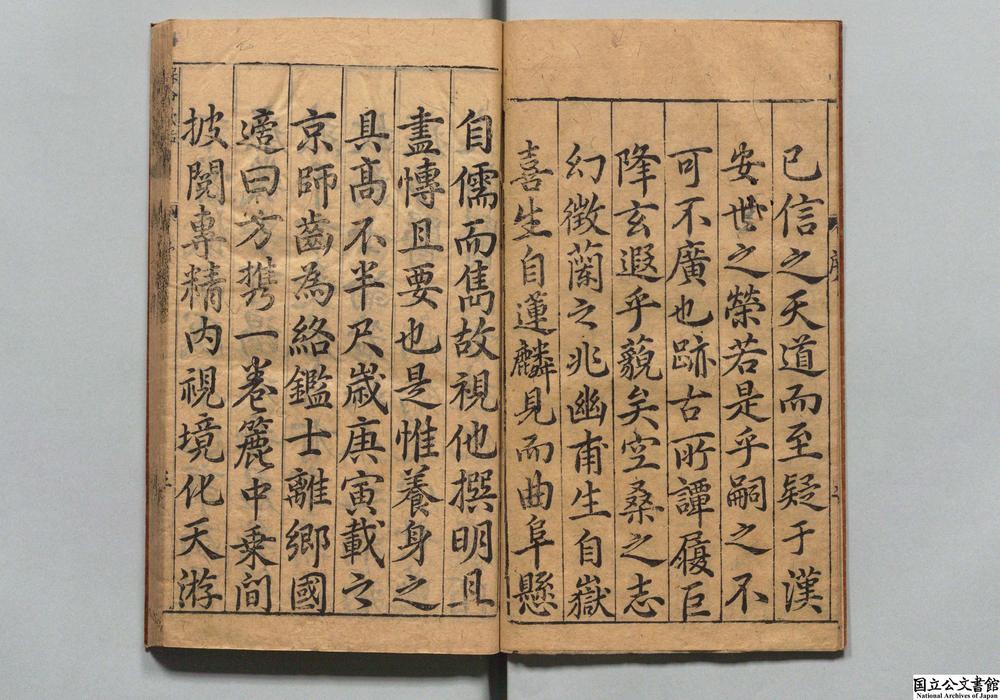 已信之天道而至疑于漢
安世之榮若是乎嗣之不
可不廣也跡古所譚履巨
降玄遐乎藐矣空桑之志
幻徵蘭之兆幽甫生自嶽
喜生自蓮麟見而曲阜懸
序
自儒而雋故視他撰明且
盡慱且要也是惟養身之
具高不半尺歲庚寅載之
京師齒為絡鑑士離鄉國
適曰方携一卷簏中乗間
披閱專精内視境化天游
国立公文書館
National Archives of Japan